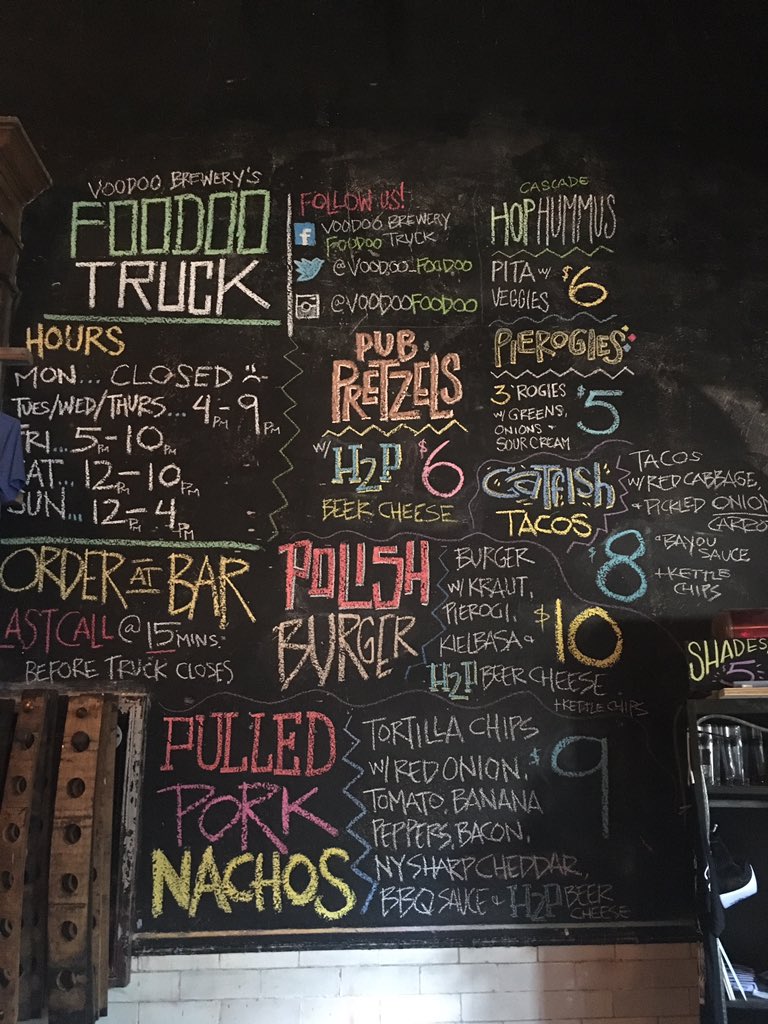 VOODOO BREWERY'S
FOODOO
TRUCK
HOURS
MON... CLOSED
TUES/WED/THURS... 4PM-9PM
FRI... 5PM-10PM
SAT... 12PM-10PM
SUN... 12PM-4PM
ORDER AT BAR
LAST CALL @ 15 MINS.
BEFORE TRUCK CLOSES
FOLLOW US!
VOODOO BREWERY
FOODOO TRUCK
@VOODOO_FOODOO
@VOODOOFOODOO
CASCADE
HOP HUMMUS
PITA W/
VEGGIES
$6
PUB
PRETZELS
W/ H2P
BEER CHEESE
$6
PIEROGIES
3 'ROGIES
W/ GREENS,
ONIONS +
SOUR CREAM
$5
CATFISH
TACOS
TACOS
W/ RED CABBAGE,
+ PICKLED ONION
BAYOU
SAUCE
+ KETTLE
CHIPS
$8
POLISH
BURGER
BURGER
W/ KRAUT,
PIEROGI,
KIELBASA +
H2P BEER CHEESE
+ KETTLE CHIPS
$10
SHADES
5
PULLED
PORK
NACHOS
TORTILLA CHIPS
W/ RED ONION,
TOMATO, BANANA
PEPPERS, BACON,
NY SHARP CHEDDAR,
BBQ SAUCE + H2P BEER
CHEESE
$9